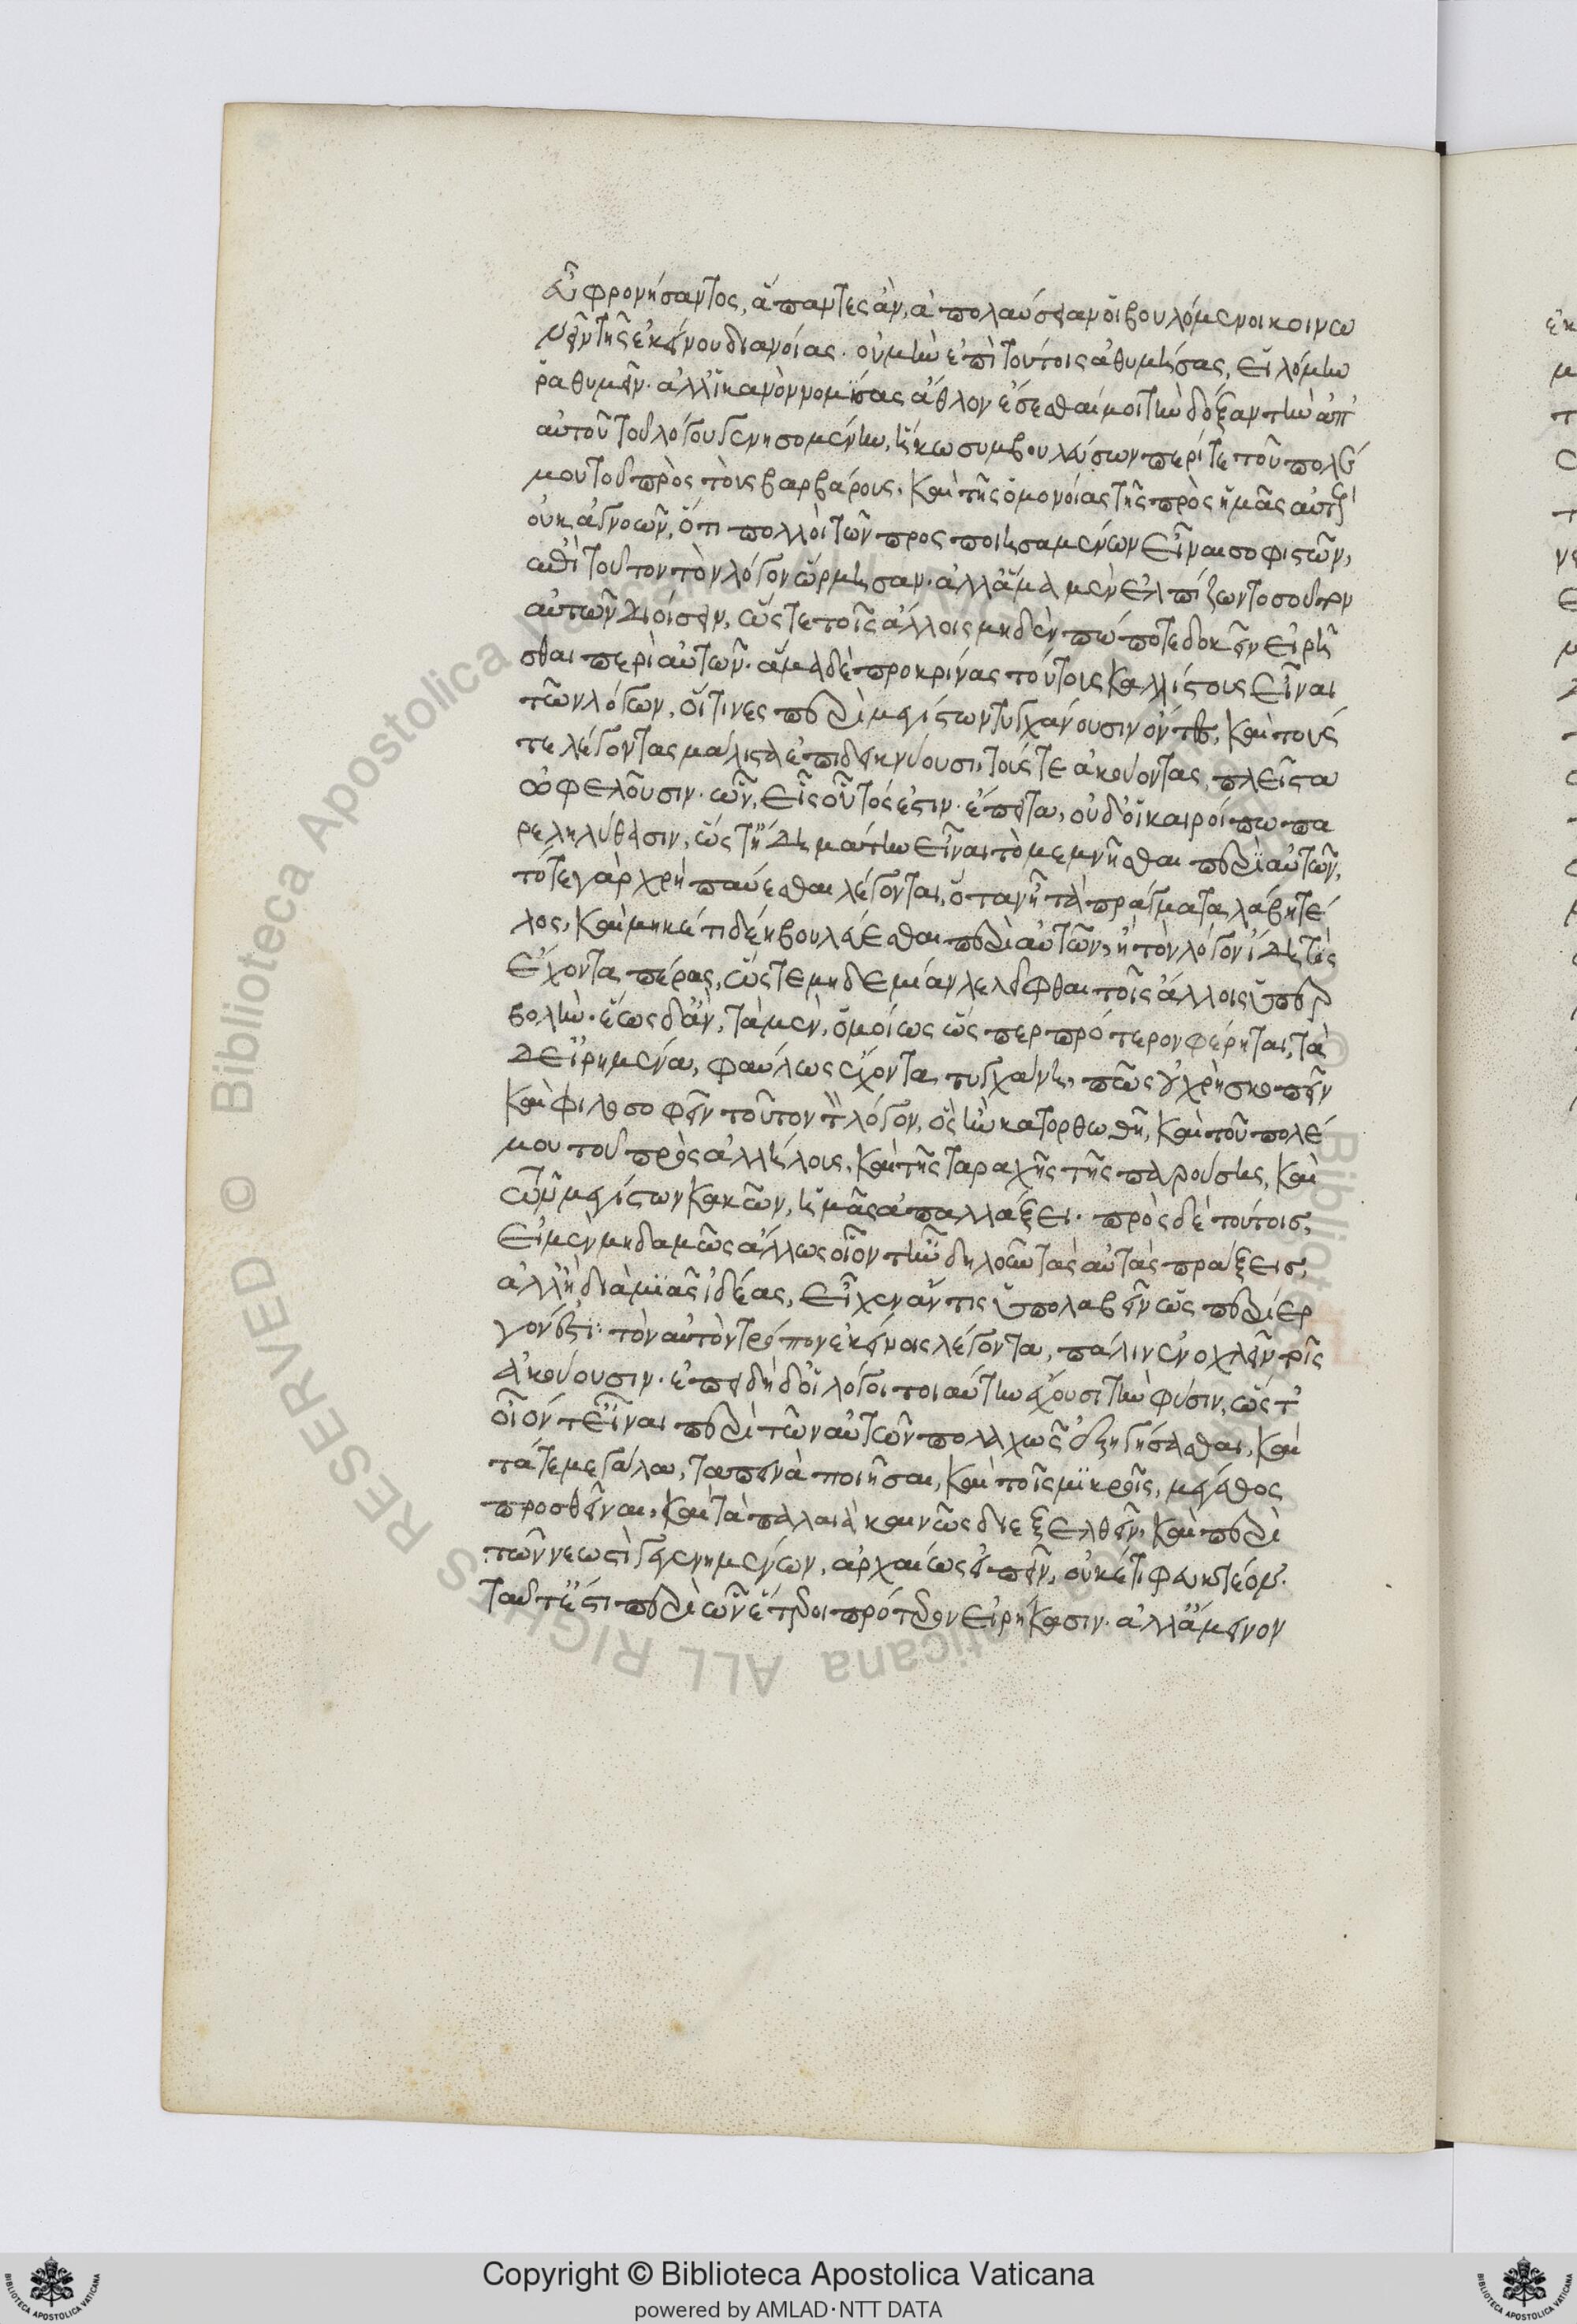 εὖ φρονήσαντος, ἅπαντες ἂν, ἀπολαύσειαν οἱ βουλόμενοι κοινω
νεῖν τῆς ἐκείνου διανοίας. οὐ μὴν ἐπὶ τούτοις ἀθυμήσας, εἱλόμην
ῥαθυμεῖν. ἀλλ' ἱκανὸν νομίσας ἆθλον ἔσεσθαί μοι τὴν δόξαν τὴν ἀπ'
αὐτοῦ τοῦ λόγου γενησομένην, ἥκω συμβουλεύσων περί τε τοῦ πολέ
μου τοῦ πρὸς τοὺς βαρβάρους, καὶ τῆς ὁμονοίας τῆς πρὸς ἡμᾶς αὐτούς·
οὐκ ἀγνοῶν, ὅτι πολλοὶ τῶν προσποιησαμένων εἶναι σοφιστῶν,
ἐπὶ τοῦτον τὸν λόγον ὥρμησαν. ἀλλ' ἅμα μὲν ἐλπίζων τοσοῦτον
αὐτῶν διοίσειν, ὥστε τοῖς ἄλλοις μηδὲν πώποτε δοκεῖν εἰρῆ
σθαι περὶ αὐτῶν. ἅμα δὲ προκρίνας τούτους καλλίστους εἶναι
τῶν λόγων, οἵτινες περὶ μεγίστων τυγχάνουσιν ὄντες, καὶ τούς
τε λέγοντας μάλιστα ἐπιδεικνύουσι, τούς τε ἀκούοντας, πλεῖστα
ὠφελοῦσιν. ὧν, εἷς οὗτός ἐστιν. ἔπειτα, οὐδ' οἱ καιροί πω πα
ρεληλύθασιν, ὥστ' ἤδη μάτην εἶναι τὸ μεμνῆσθαι περὶ αὐτῶν,
τότε γὰρ χρὴ παύεσθαι λέγοντας, ὅταν ἢ τὰ πράγματα λάβη τέ
λος, καὶ μηκέτι δέη βουλεύεσθαι περὶ αὐτῶν, ἢ τὸν λόγον ἴδη τις
ἔχοντα πέρας, ὥστε μηδεμίαν λελεῖφθαι τοῖς ἄλλοις ὑπερ
βολήν. ἕως δ' ἂν, τὰ μὲν, ὁμοίως ὥσπερ πρότερον φέρηται, τὰ
δ' εἰρημένα, φαύλως ἔχοντα τυγχάνη, πῶς οὐ χρὴ σκοπεῖν
καὶ φιλοσοφεῖν τοῦτον τὸν λόγον, ὃς ἢν κατορθωθῆ, καὶ τοῦ πολέ
μου τοῦ πρὸς ἀλλήλους, καὶ τῆς ταραχῆς τῆς παρούσης, καὶ
τῶν μεγίστων κακῶν, ἡμᾶς ἀπαλλάξει. πρὸς δὲ τούτοις,
εἰ μὲν μηδαμῶς ἄλλως οἷόν τ' ἦν δηλοῦν τὰς αὐτὰς πράξεις,
ἀλλ' ἢ διὰ μιᾶς ἰδέας, εἶχεν ἄν τις ὑπολαβεῖν ὡς περίερ
γόν ἐστι τὸν αὐτὸν τρόπον ἐκείνοις λέγοντα, πάλιν ἐνοχλεῖν τοῖς
ἀκούουσιν. ἐπειδὴ δ' οἱ λόγοι τοιαύτην ἔχουσι τὴν φύσιν, ὥστ'
οἷόν τ' εἶναι περὶ τῶν αὐτῶν πολλαχῶς ἐξηγήσασθαι, καὶ
τά τε μεγάλα, ταπεινὰ ποιῆσαι, καὶ τοῖς μικροῖς, μέγεθος
προσθεῖναι, καὶ τὰ παλαιὰ καινῶς διεξελθεῖν, καὶ περὶ
τῶν νεωστὶ γεγενημένων, ἀρχαίως εἰπεῖν, οὐκέτι φευκτέον.
ταῦτ' ἐστι περὶ ὧν ἕτεροι πρότερον εἰρήκασιν. ἀλλ' ἄμεινον
Copyright © Biblioteca Apostolica Vaticana
powered by AMLAD·NTT DATA